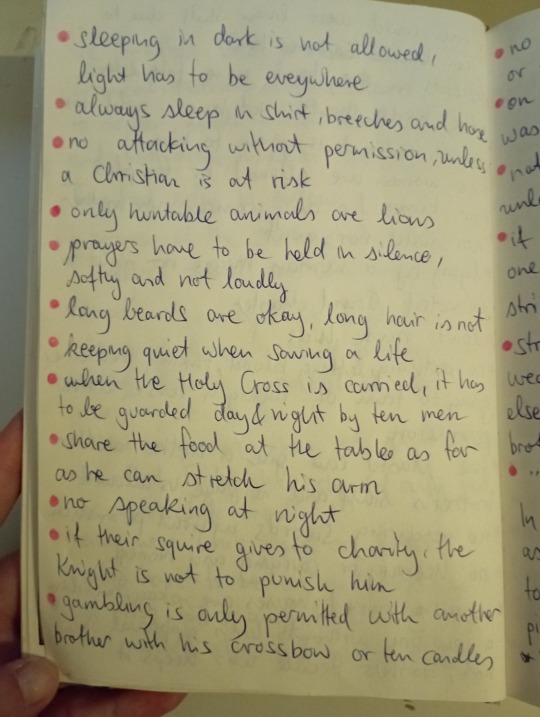 • sleeping in dark is not allowed,
light has to be eveywhere
• always sleep in shirt, breeches and hose
• no attacking without permission, unless
a Christian is at risk
• only huntable animals are lions
• prayers have to be held in silence,
softly and not loudly
• long beards are okay, long hair is not
• keeping quiet when saving a life
• when the Holy Cross is carried, it has
to be guarded day & night by ten men
• share the food at the tables as far
as he can stretch his arm
• no speaking at night
• if their squire gives to charity, the
Knight is not to punish him
• gambling is only permitted with another
brother with his crossbow or ten candles
• no
or
• on
was
• not
unl
• if
one
stri
• str
wea
else
brot
• "
In
as
to
pi
*